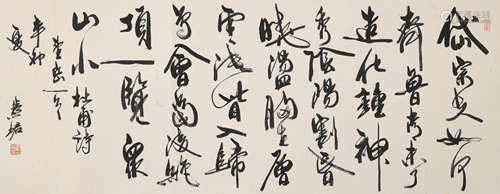 岱宗夫如何
齊魯青未了
造化鍾神
秀陰陽割昏
曉盪胸生層
雲決眥入歸
鳥會當凌絕
頂一覽眾
山小杜甫詩
望岳一
辛卯
夏